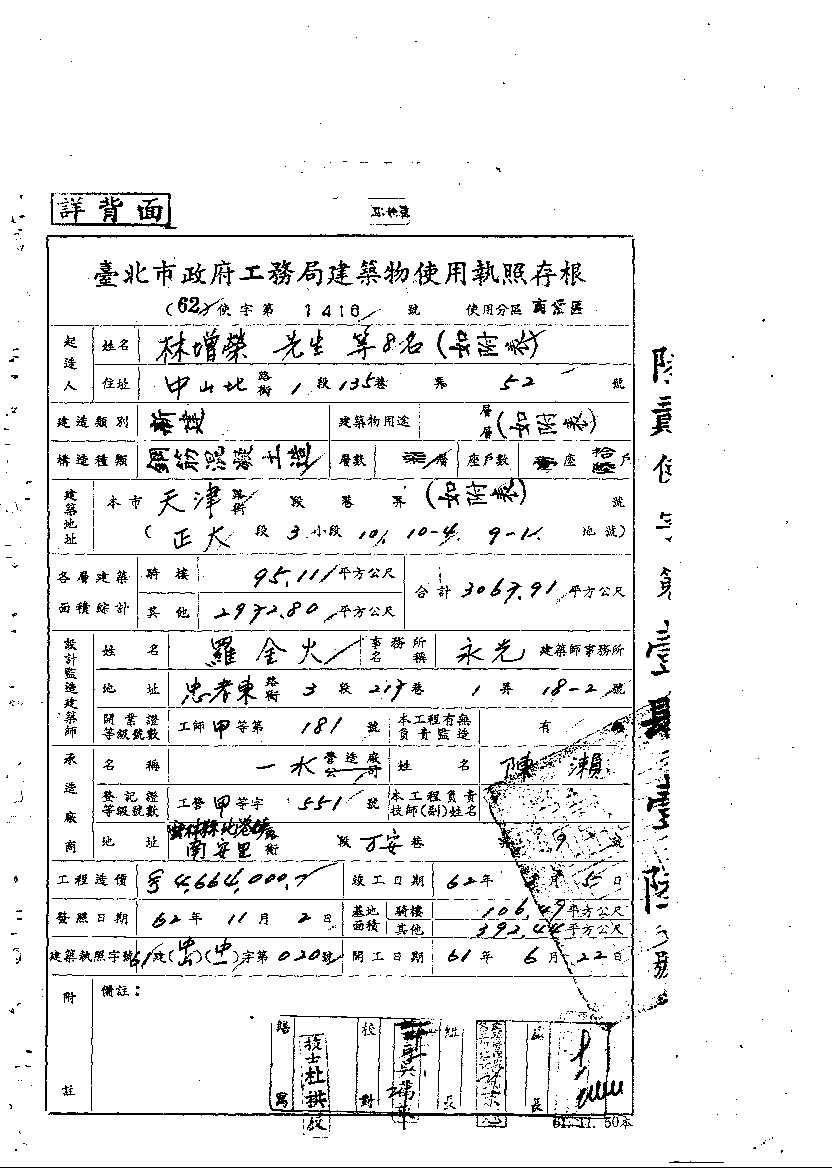 詳背面
臺北市政府工務局建築物使用執照存根
(62)使字第 1416 號 使用分區 商業區
起造人 姓名 林增榮 先生 等8名(如附表)
住址 中山北路街 1段135巷 弄 52 號
建造類別 新建 建築物用途 層層(如附表)
構造種類 鋼筋混凝土造 層數 層 座戶數 座 戶
建築地址 本市 天津路街 段 巷 弄(如附表) 號
(正大 段 3 小段 10, 10-4. 9-1. 地號)
各層建築面積綜計 騎樓 95.11 平方公尺 合計 3067.91 平方公尺
其他 2972.80 平方公尺
設計監造建築師 姓名 羅金火 事務所名稱 永光 建築師事務所
地址 忠孝東路街 3 段 217 巷 1 弄 18-2 號
開業證等級號數 工師甲等第 181 號 本工程有無負責監造 有
承造廠商 名稱 一水 營造廠公司 姓名 陳瀨
登記證等級號數 工營甲等字 551 號 本工程負責技師(副)姓名
地址 南安里 街 段 万安巷 9 號
工程造價 4,664,000 竣工日期 62年 月 5日
發照日期 62年 11月 2日 基地面積 騎樓 106.49 平方公尺
其他 392.44 平方公尺
建築執照字號 61建(中)(中)字第020號 開工日期 61年 6月 22日
附註 備註:
繕寫 技士杜 校對 吳 組長 局長
61. 11. 50本